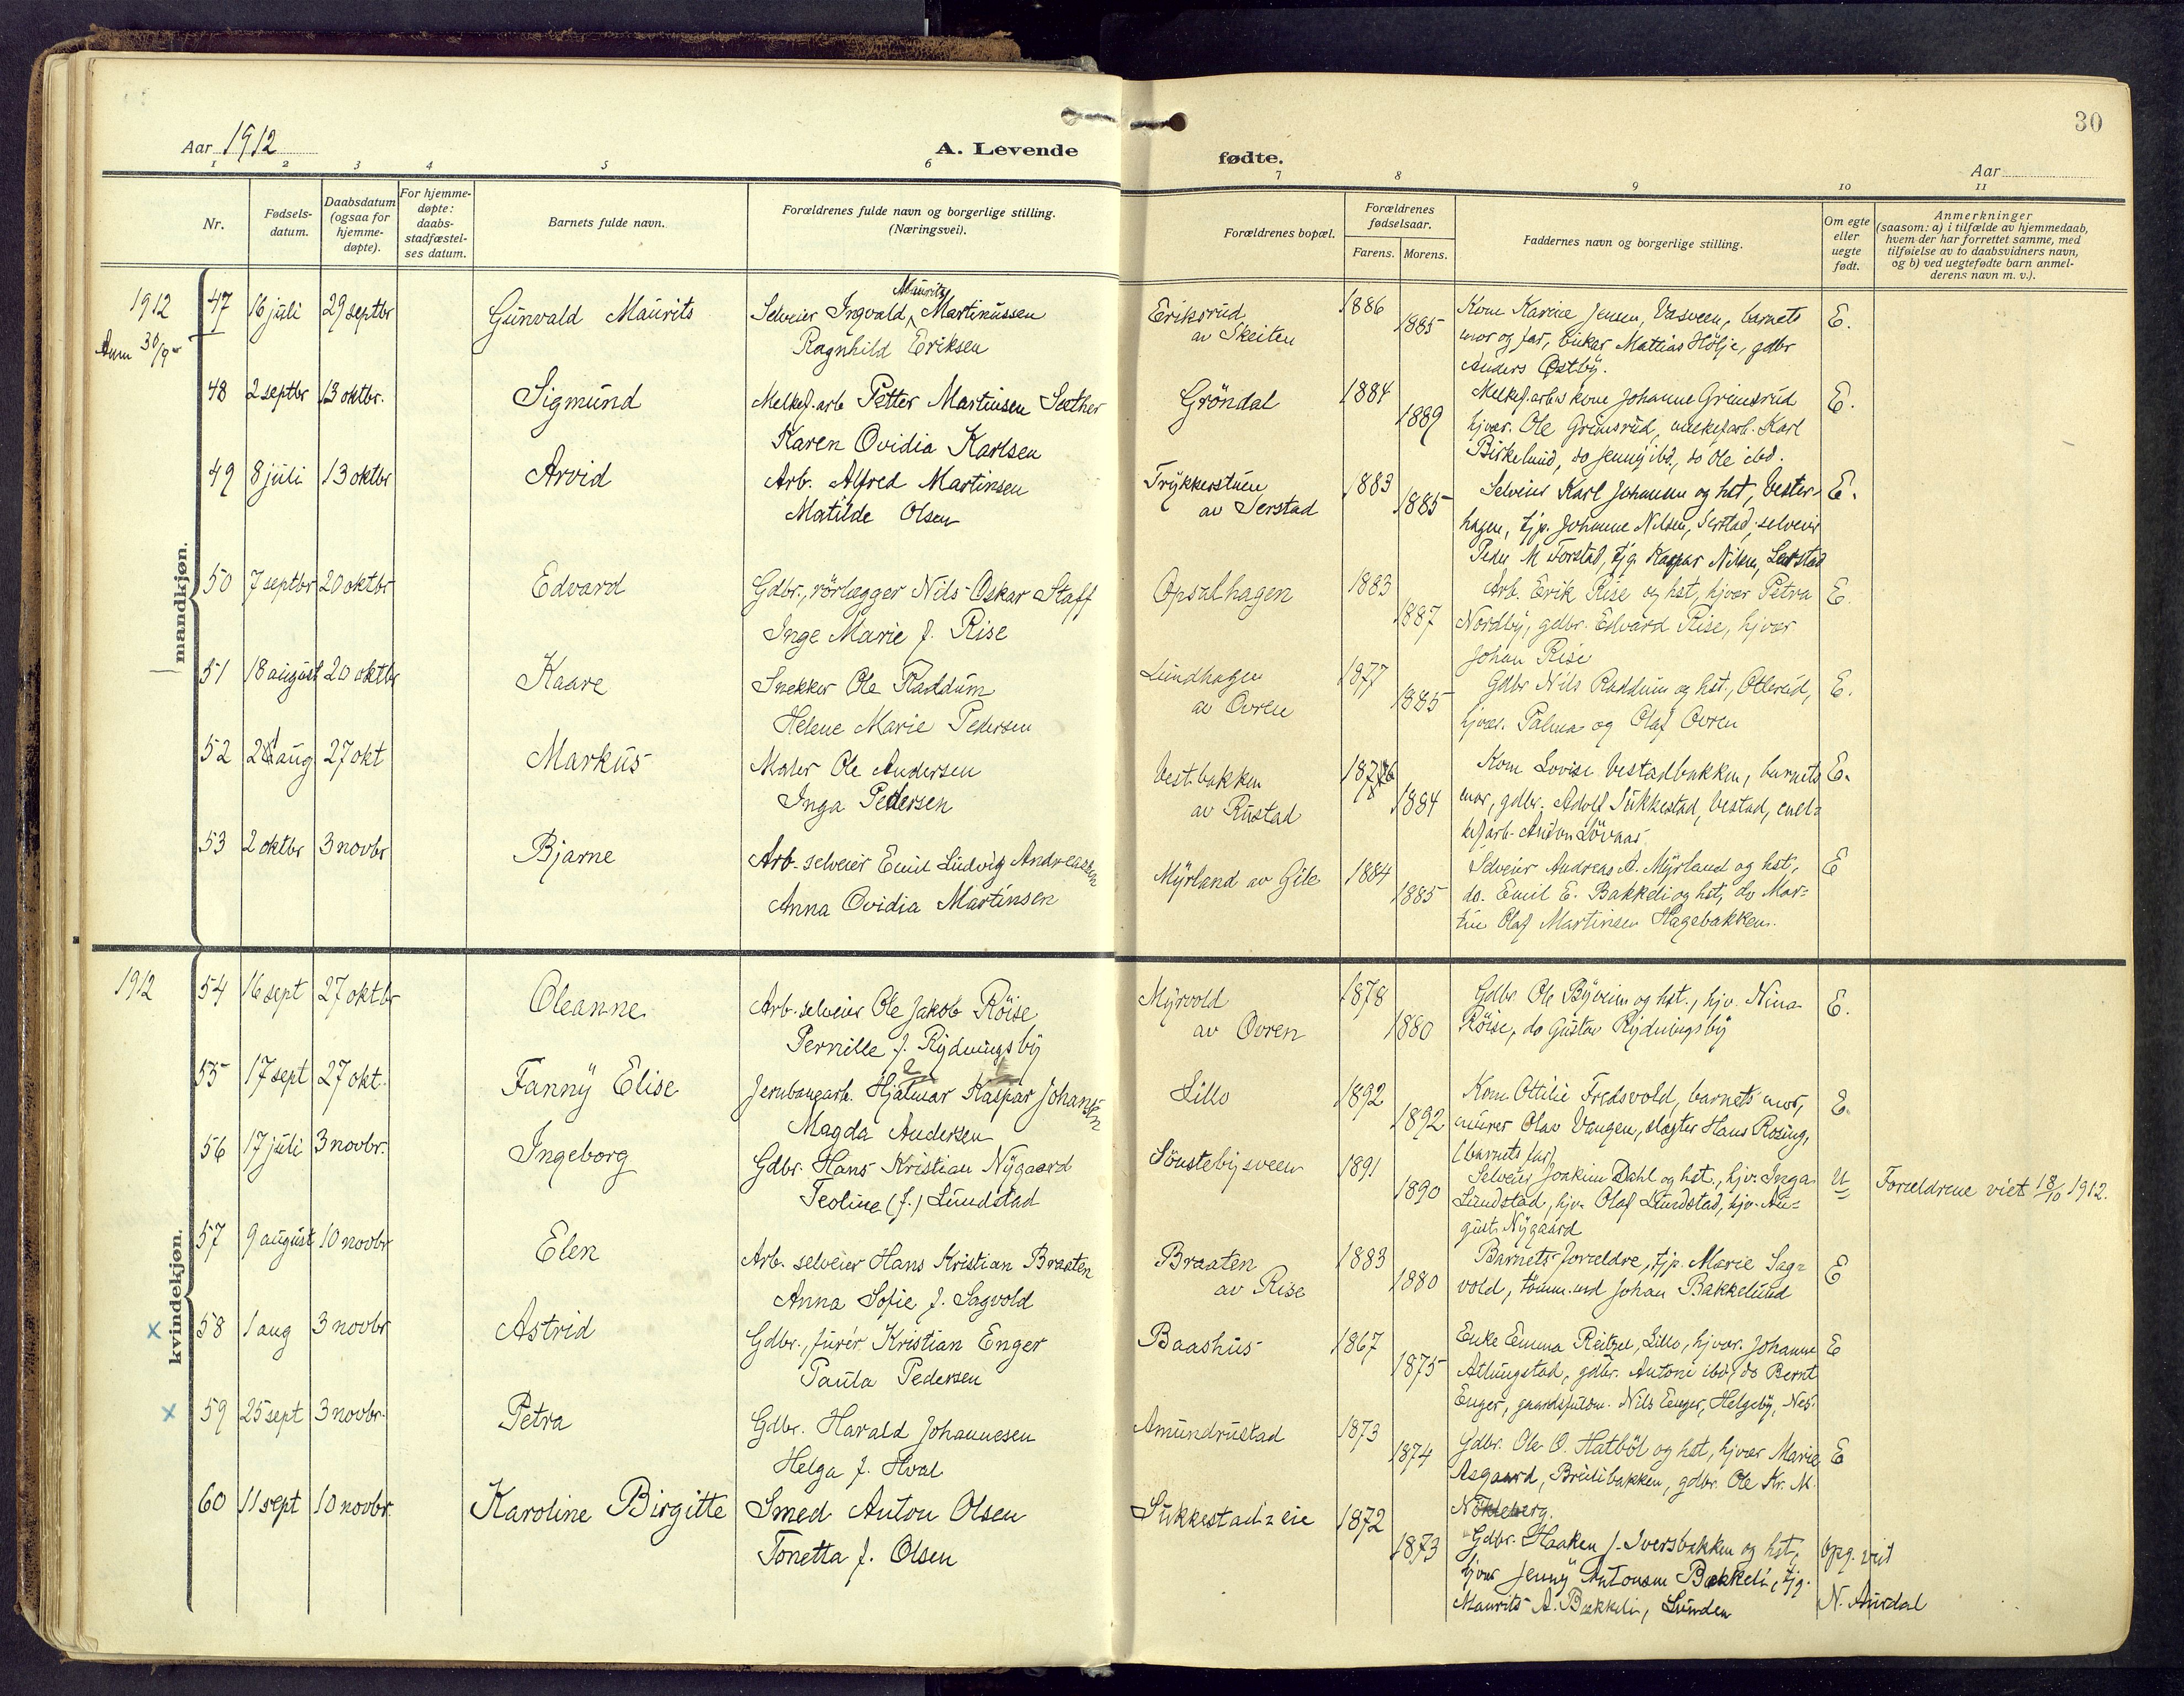 30
Aar 1912
A. Levende fødte.
Aar
1 2 3 4 5 6 7 8 9 10 11
Nr.
Fødsels-datum.
Daabsdatum (ogsaa for hjemme-døpte).
For hjemme-døpte: daabs-stadfæstel-ses datum.
Barnets fulde navn.
Forældrenes fulde navn og borgerlige stilling. (Næringsvei).
Forældrenes bopæl.
Forældrenes fødselsaar.
Farens. Morens.
Faddernes navn og borgerlige stilling.
Om egte eller uegte født.
Anmerkninger (saasom: a) i tilfælde av hjemmedaab, hvem der har forrettet samme, med tilføielse av to daabsvidners navn, og b) ved uegtefødte barn anmel-derens navn m. v.).
mandkjøn.
1912 47 16 juli 29 septbr Gunvald Maurits Selveier Ingvald Maurits Martinussen Eriksrud 1886 Kone Karine Jensen, Vasveen, barnets E.
Ragnhild Eriksen av Skeiten 1885 mor og far, enkar Mattias Hölje, gdbr
Anders Østby.
48 2 septbr 13 oktbr. Sigmund Melkef. arb Petter Martinsen Sæther Gröndal 1884 Melkef. arb.s kone Johanne Grimsrud E.
Karen Ovidia Karlsen 1889 hjvær. Ole Grimsrud, melkef.arb. Karl
Birkelund, do Jenny ibd., do Ole ibd.
49 8 juli 13 oktbr Arvid Arb. Alfred Martinsen Trykkerstuen 1883 Selveier Karl Johansen og hst, Vester- E.
Matilde Olsen av Serstad 1885 hagen, tjp. Johanne Nilsen, Serstad, selveier
Peder M Forstad, tjg. Kaspar Nilsen, Serstad
50 7 septbr 20 oktbr Edvard Gdbr., rörlægger Nils Oskar Staff Opsalhagen 1883 Arb. Erik Rise og hst, hjvær Petra E.
Inge Marie f. Rise 1887 Nordby, gdbr. Edvard Rise, hjvær
Johan Rise
51 18 august 20 oktbr Kaare Snekker Ole Raddum Lundhagen 1877 Gdbr Nils Raddum og hst., Otterud, E.
Helene Marie Pedersen av Ovren 1885 hjvær. Palma og Olaf Ovren
52 aug 27 okt Markus Maler Ole Andersen Vestbakken Kone Lovise Vestadbakken, barnets E.
Inga Pedersen av Rustad 1884 mor, gdbr. Adolf Sukkestad, Vestad, melk
kef.arb. Anton Lövaas.
53 2 oktbr 3 novbr Bjarne Arb. selveier Emil Ludvig Andreassen Myrland av Gile 1884 Selveier Andreas A. Myrland og hst., E
Anna Ovidia Martinsen 1885 do. Emil E. Bakkeli og hst, do Mar-
tin Olaf Martinsen Hagebakken.
kvindekjøn.
1912 54 16 sept 27 oktbr Oleanne Arb. selveier Ole Jakob Röise Myrvold 1878 Gdbr. Ole Byveien og hst., hjv. Nina E.
Pernille f. Rydningsby av Ovren 1880 Röise, do Gustav Rydningsby
55 17 sept 27 okt. Fanny Elise Jernbanearb. Hjalmar Kaspar Johansen Lillo 1892 Kone Ottilie Fredsvold, barnets mor, E.
Magda Andersen 1892 murer Olav Vangen, slagter Hans Rosing,
(barnets far)
56 17 juli 3 novbr. Ingeborg Gdbr. Hans Kristian Nygaard Sönstebysveen 1891 Selveier Joakim Dahl og hst., hjv. Inga U Forældrene viet 18/10 1912.
Teoline (f.) Lundstad 1890 Lundstad, hjv. Olaf Lundstad, hjv. Au-
gust Nygaard
57 9 august 10 novbr Elen Arb. selveier Hans Kristian Braaten Braaten 1883 Barnets forældre, tjp. Marie Sag- E
Anna Sofie f. Sagvold av Rise 1880 vold, tömm.md Johan Bakkelund
x 58 1 aug 3 novbr Astrid Gdbr., furér Kristian Enger Baashus 1867 Enke Emma Reitzel, Lillo, hjvær. Johanne E
Paula Pedersen 1875 Atlungstad, gdbr. Antoni ibd, do Bernt
Enger, gaardsfuldm. Nils Enger, Helgeby, Nes.
x 59 25 sept 3 novbr. Petra Gdbr. Harald Johannesen Amundrustad 1873 Gdbr. Ole O. Hatböl og hst, hjvær Marie E
Helga f. Hval 1874 Asgaard, Brulibakken, gdbr. Ole Kr. M.
Nökleberg.
60 11 sept 10 novbr. Karoline Birgitte Smed Anton Olsen Sukkestad-eie 1872 Gdbr. Haaken J. Iversbakken og hst, opg. viet
Tonetta f. Olsen 1873 hjvær Jenny Antonsen Bækkeli, tjg.
Maurits A. Bækkeli, Lunden N. Aurdal